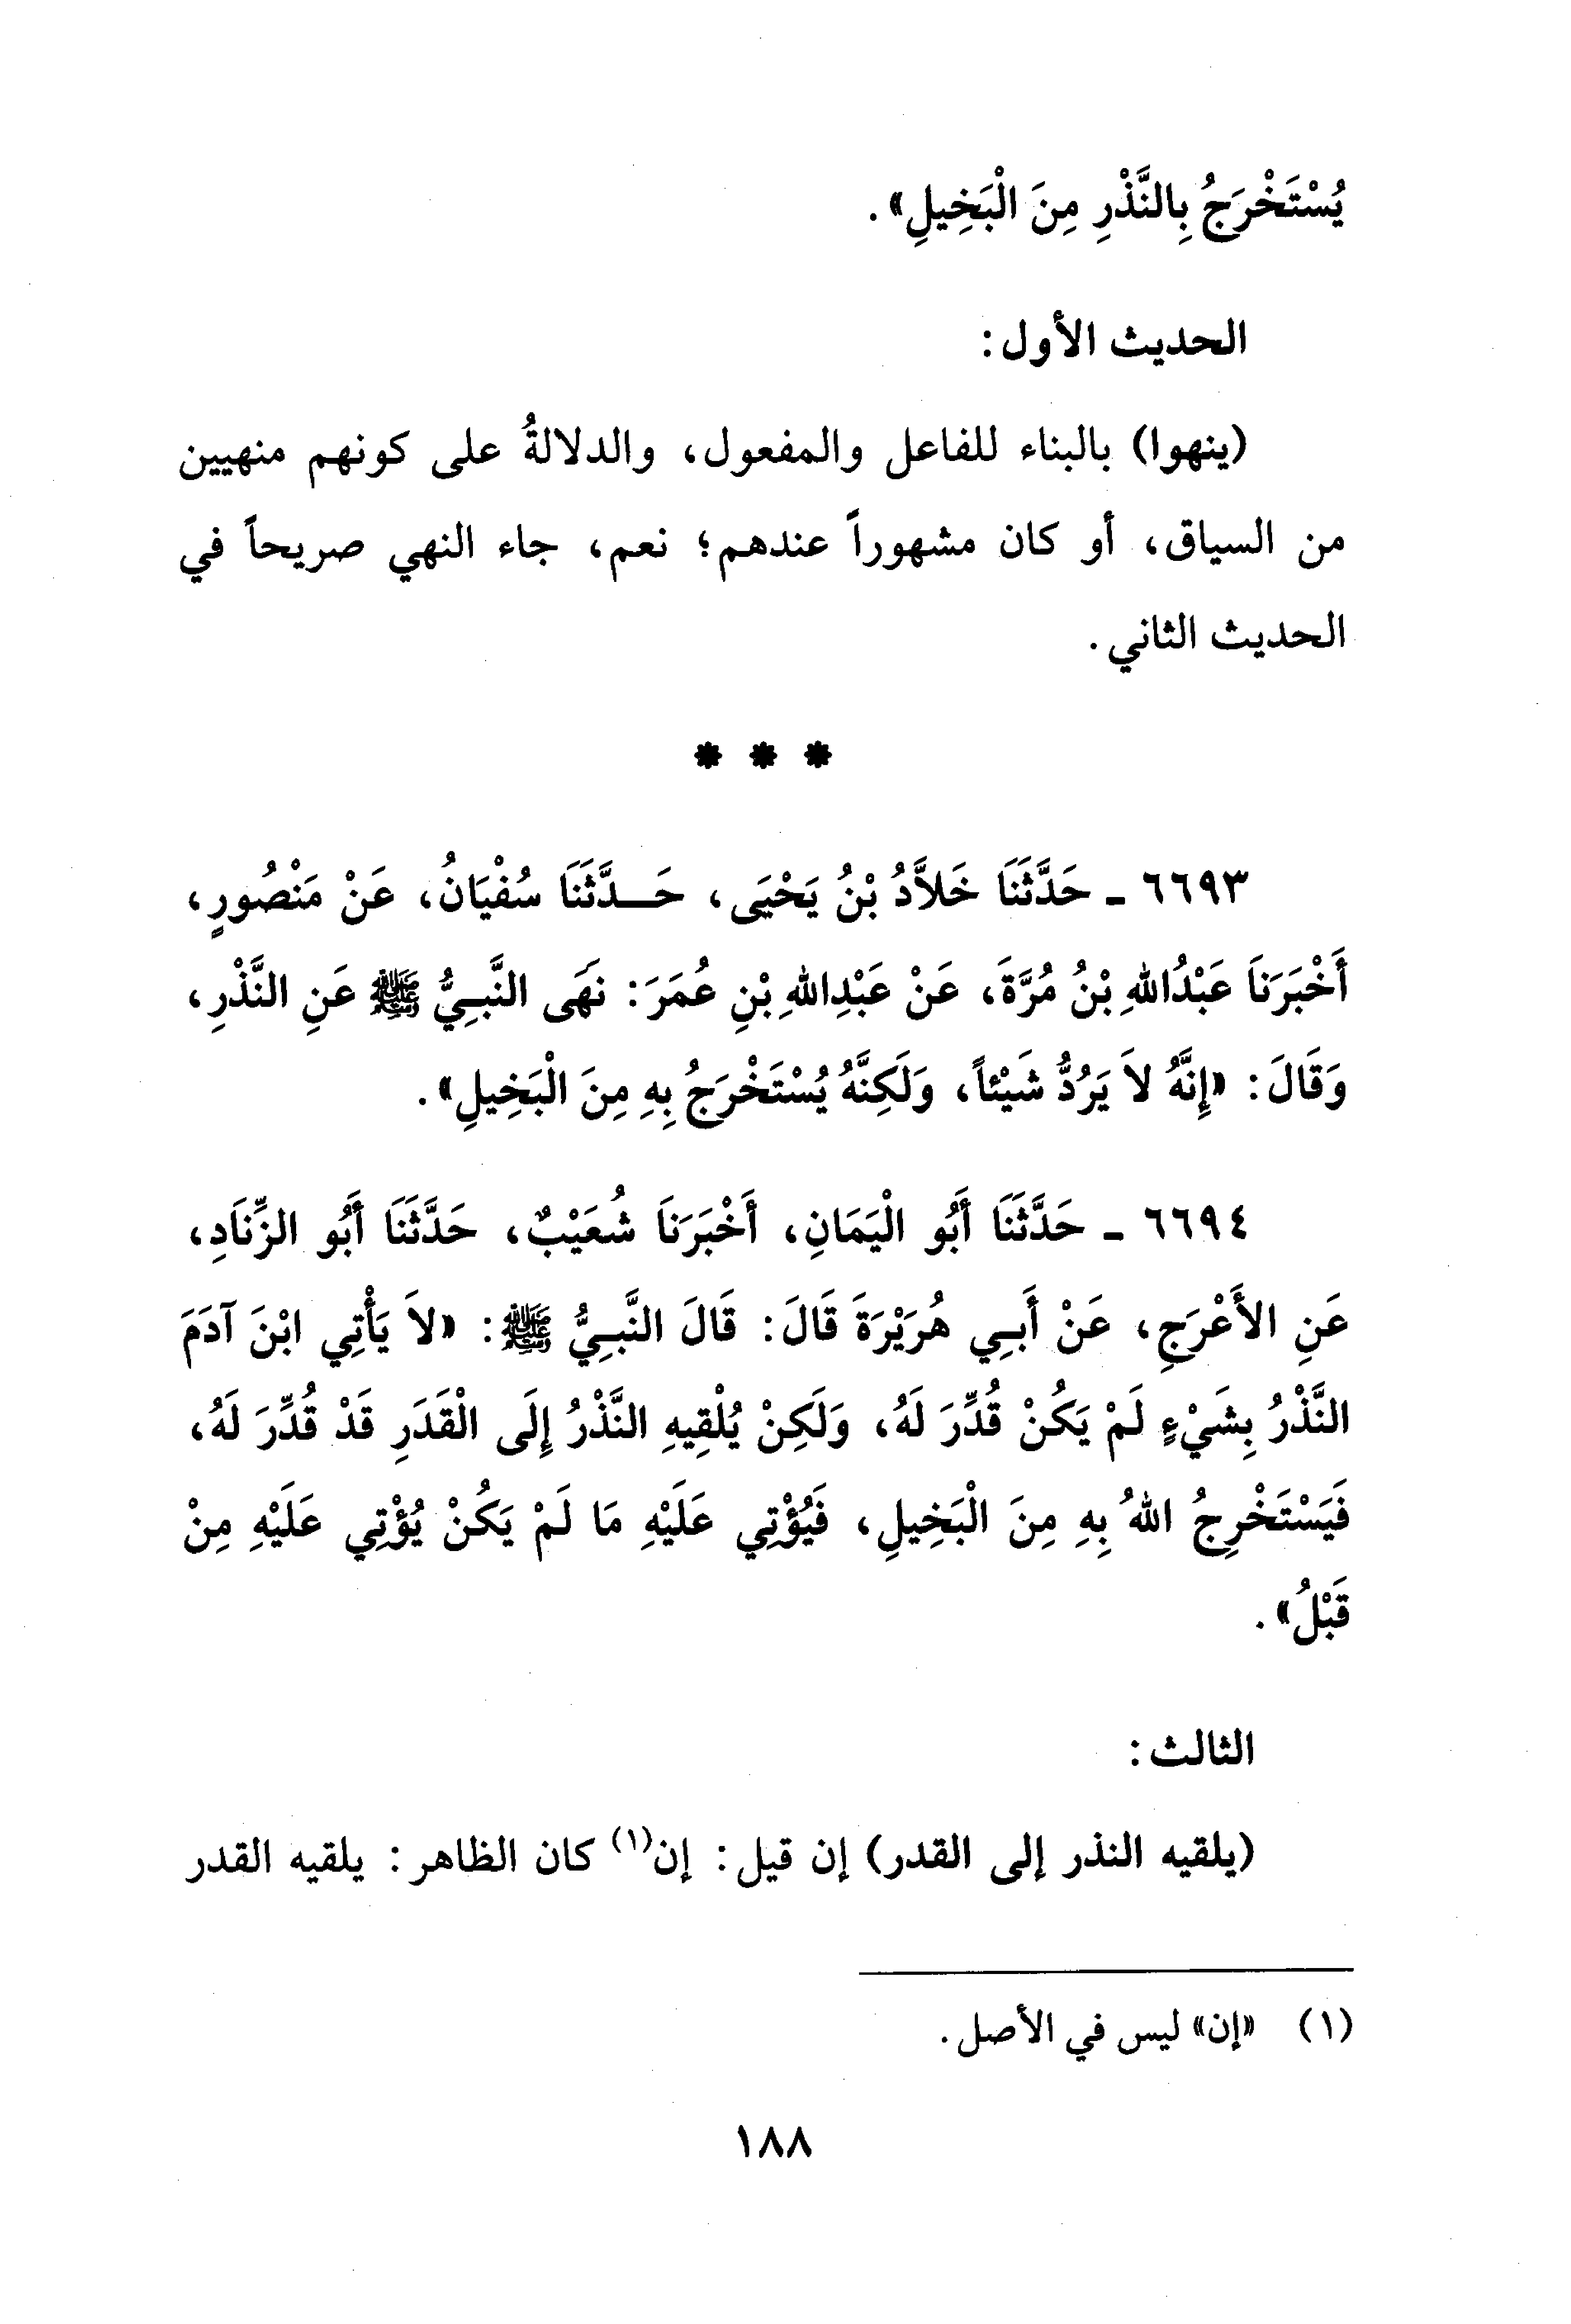 يُسْتَخْرَجُ بِالنَّذْرِ مِنَ الْبَخِيلِ».
الحديث الأول:
(ينهوا) بالبناء للفاعل والمفعول، والدلالةُ على كونهم منهيين
من السياق، أو كان مشهوراً عندهم؛ نعم، جاء النهي صريحاً في
الحديث الثاني.
* * *
٦٦٩٣ - حَدَّثَنَا خَلاَّدُ بْنُ يَحْيَى، حَدَّثَنَا سُفْيَانُ، عَنْ مَنْصُورٍ،
أَخْبَرَنَا عَبْدُاللهِ بْنُ مُرَّةَ، عَنْ عَبْدِاللهِ بْنِ عُمَرَ: نَهَى النَّبِيُّ ﷺ عَنِ النَّذْرِ،
وَقَالَ: «إِنَّهُ لاَ يَرُدُّ شَيْئاً، وَلَكِنَّهُ يُسْتَخْرَجُ بِهِ مِنَ الْبَخِيلِ».
٦٦٩٤ - حَدَّثَنَا أَبُو الْيَمَانِ، أَخْبَرَنَا شُعَيْبٌ، حَدَّثَنَا أَبُو الزِّنَادِ،
عَنِ الأَعْرَجِ، عَنْ أَبِي هُرَيْرَةَ قَالَ: قَالَ النَّبِيُّ ﷺ: «لاَ يَأْتِي ابْنَ آدَمَ
النَّذْرُ بِشَيْءٍ لَمْ يَكُنْ قُدِّرَ لَهُ، وَلَكِنْ يُلْقِيهِ النَّذْرُ إِلَى الْقَدَرِ قَدْ قُدِّرَ لَهُ،
فَيَسْتَخْرِجُ اللهُ بِهِ مِنَ الْبَخِيلِ، فَيُؤْتِي عَلَيْهِ مَا لَمْ يَكُنْ يُؤْتِي عَلَيْهِ مِنْ
قَبْلُ».
الثالث:
(يلقيه النذر إلى القدر) إن قيل: إن(١) كان الظاهر: يلقيه القدر
(١) «إن» ليس في الأصل.
١٨٨